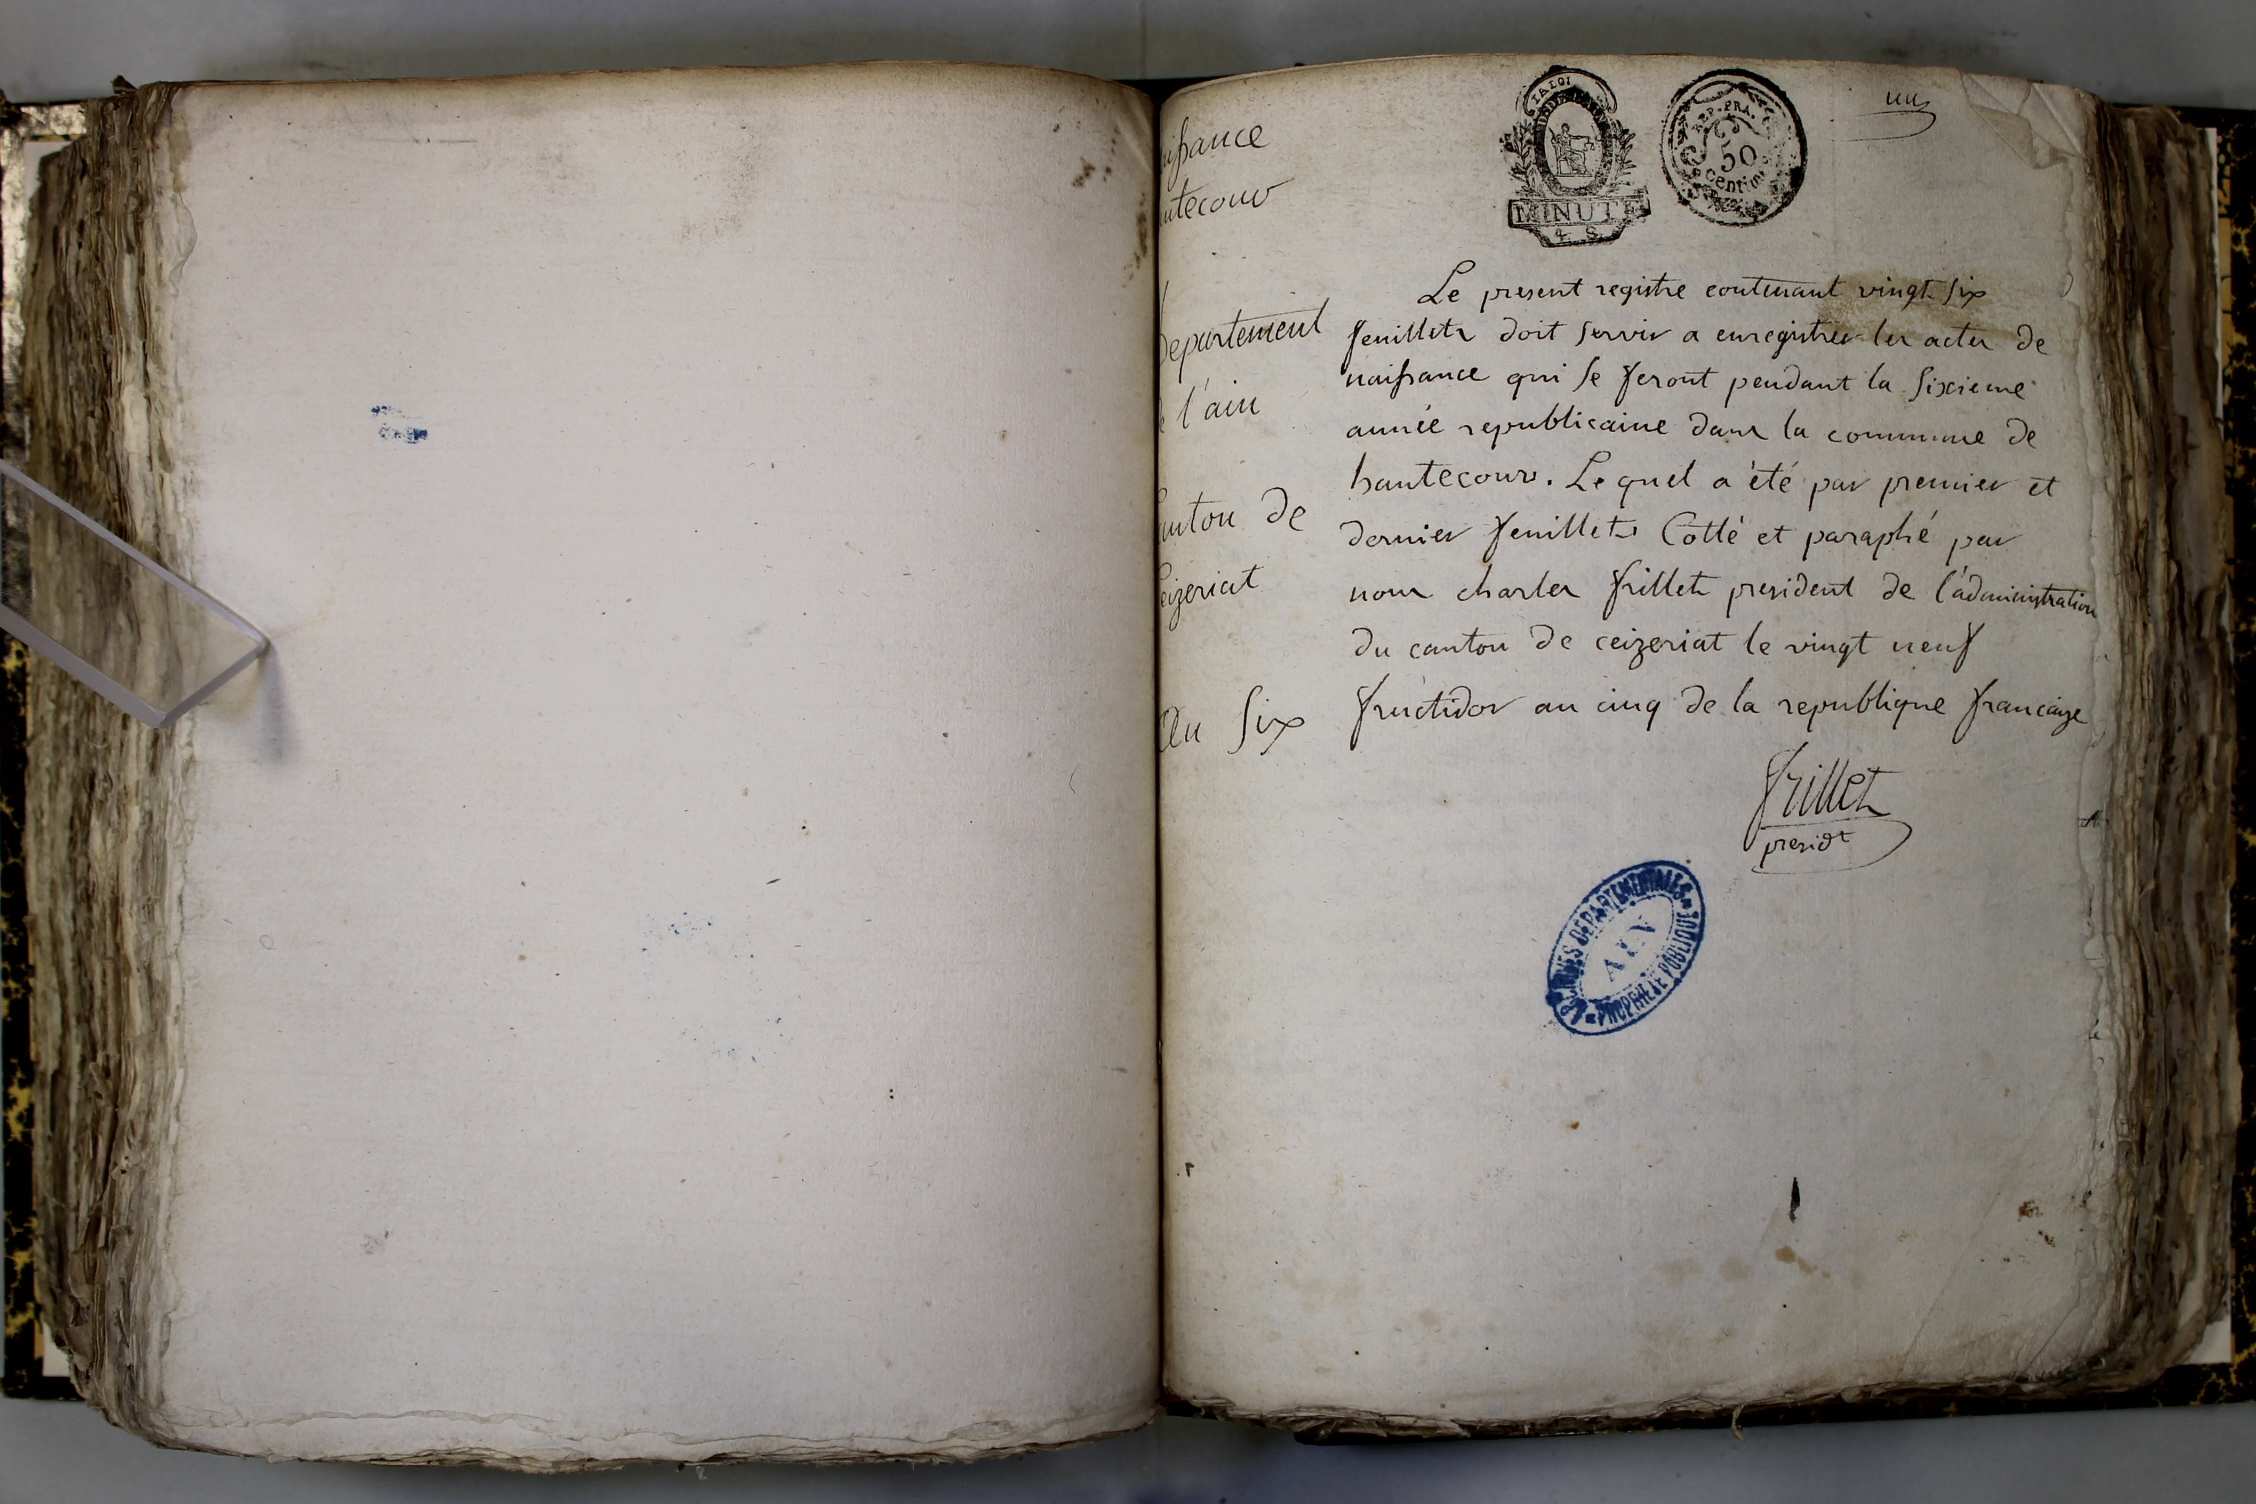 un
LA LOI
MINUTE
4. S.
REP. FRA.
50
centim
naissance
hautecour
departement
de l'ain
Canton de
Ceizeriat
An Six
Le present registre contenant vingt six
feuillets doit servir a enregistrer les actes de
naissance qui se feront pendant la sixieme
année republicaine dans la commune de
hautecour. Le quel a été par premier et
dernier feuillets Cotté et paraphé par
nous charles frillet president de l'administration
du canton de ceizeriat le vingt neuf
fructidor an cinq de la republique francaize
frillet
presidt
ARCHIVES DEPARTEMENTALES
AIN
PROPRIETE PUBLIQUE